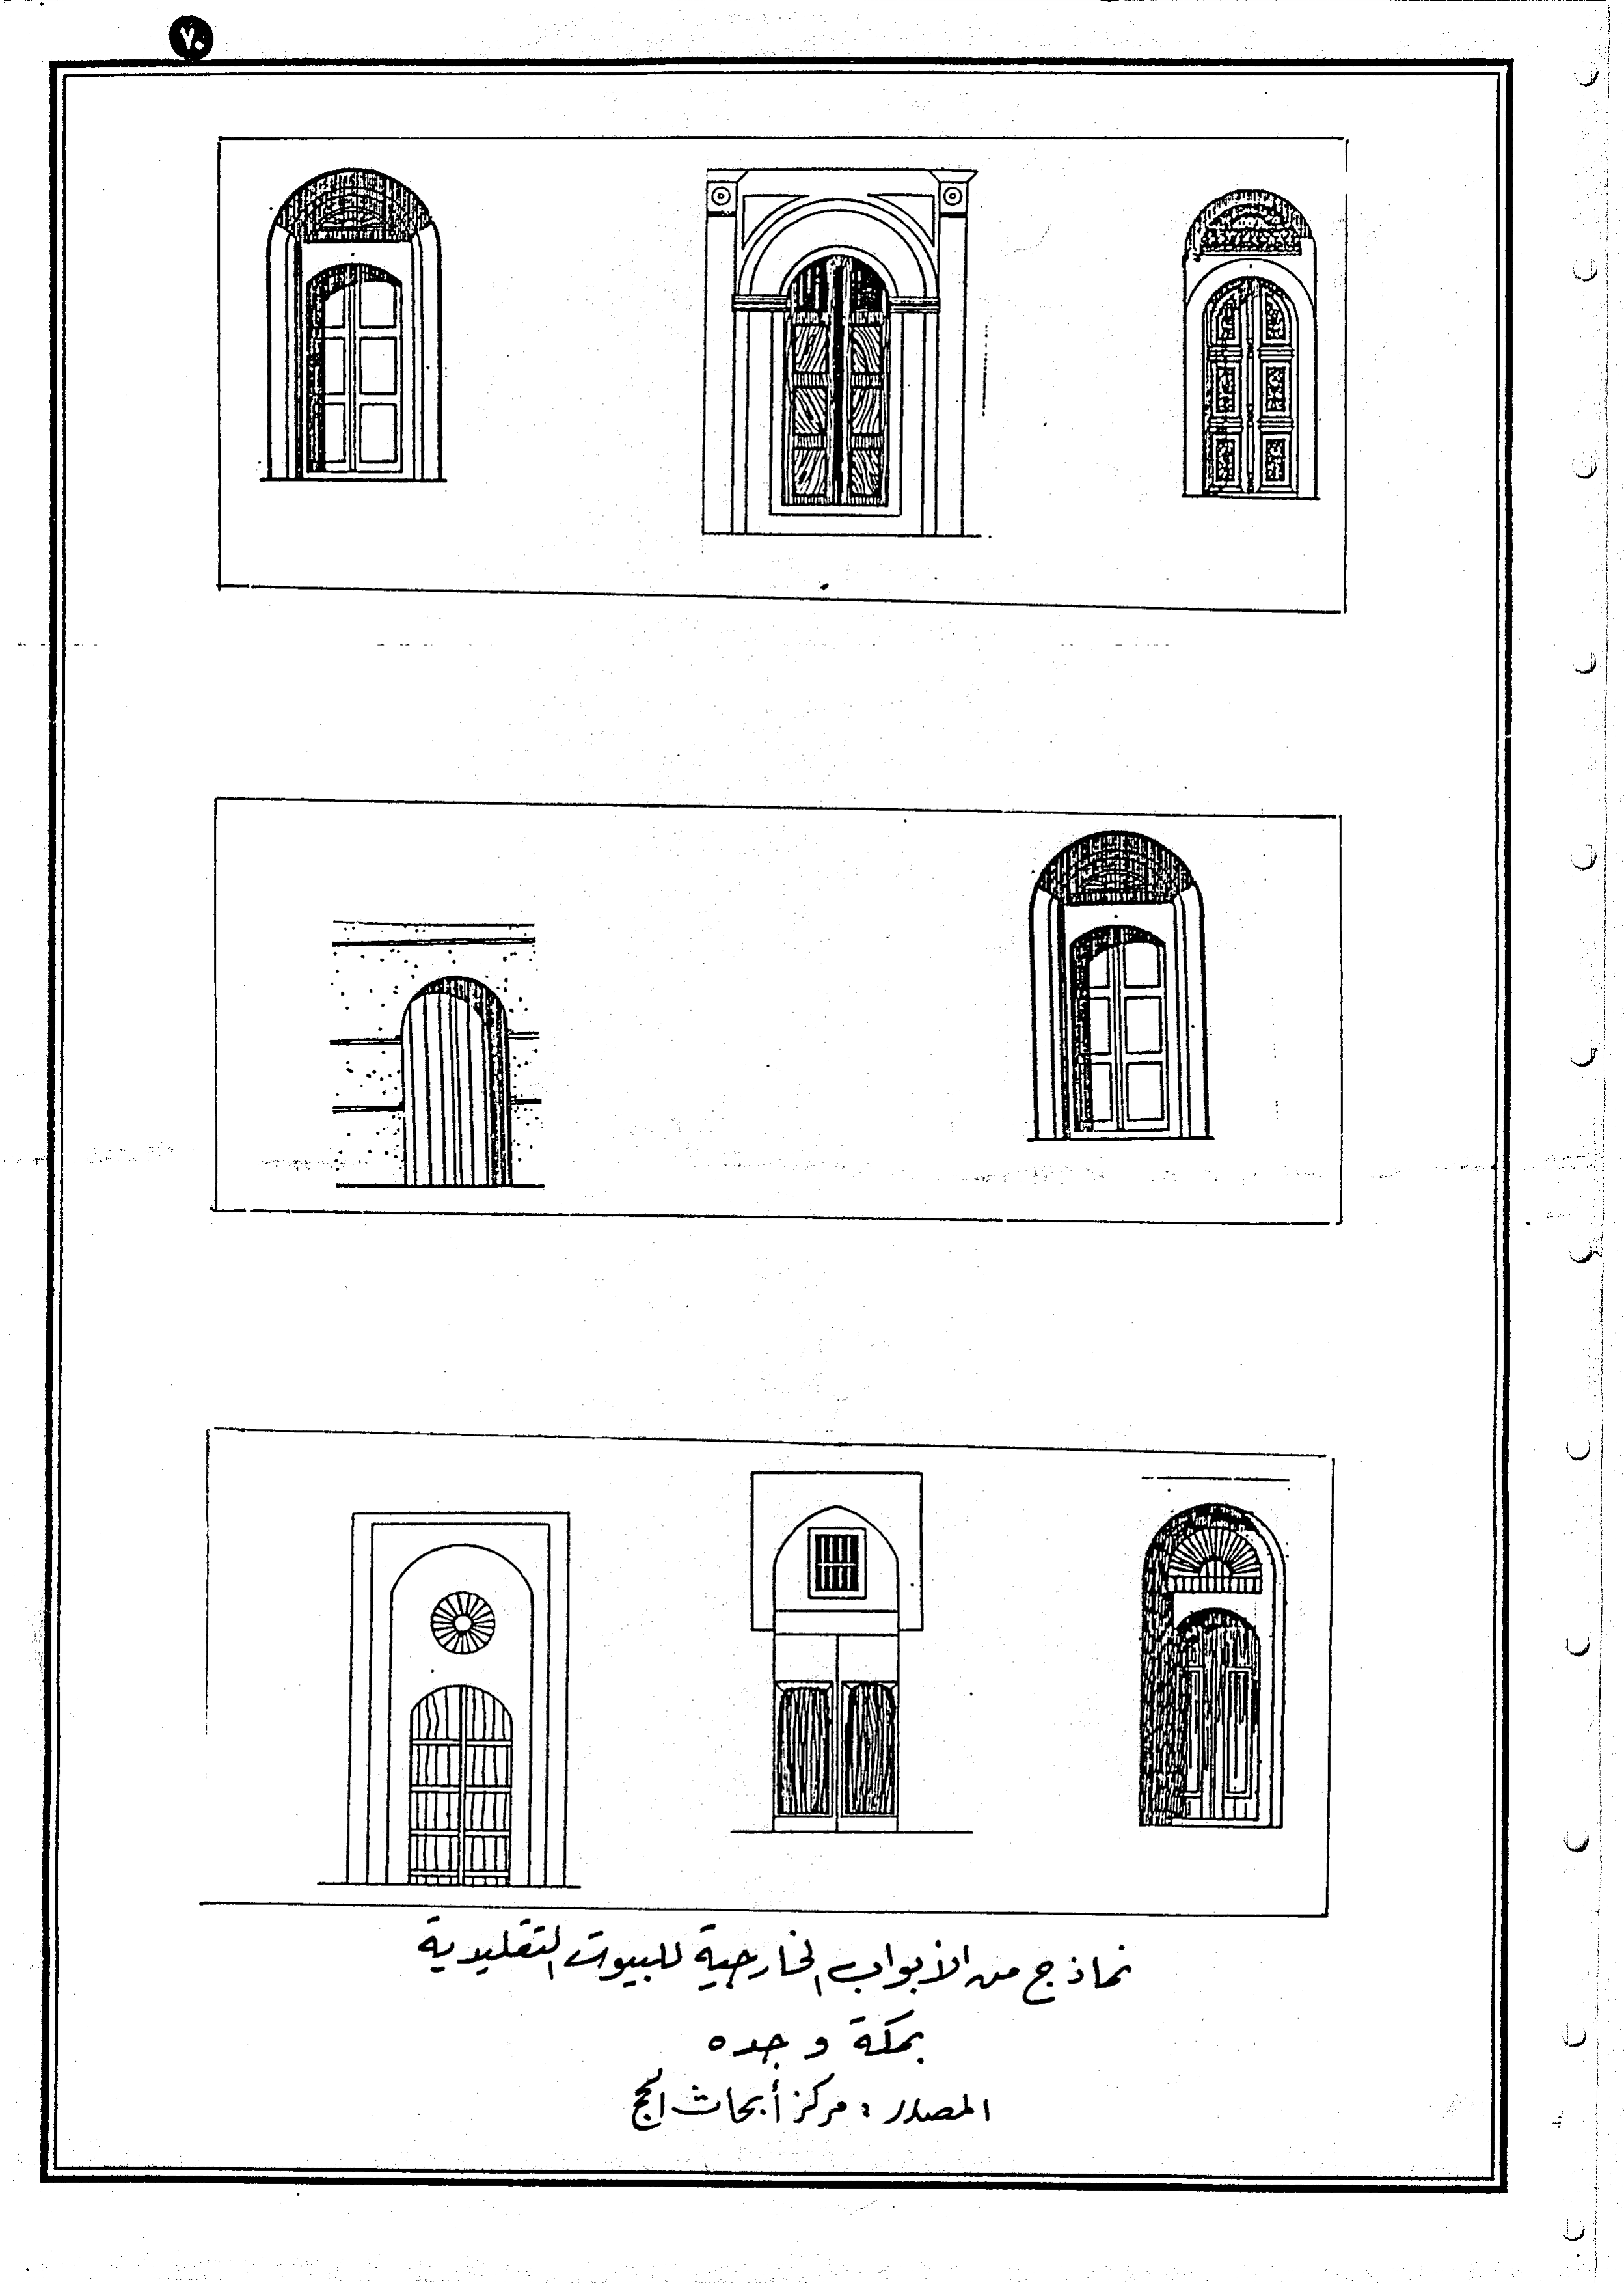 ٧٠
نماذج من الأبواب الخارجية للبيوت التقليدية
بمكة و جده
المصدر : مركز أبحاث الحج